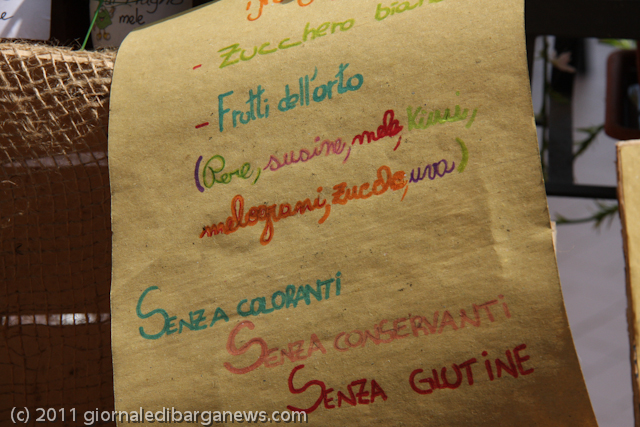 mele
- Zucchero bian
- Frutti dell'orto
(Pere, susine, mele, Kiwi,
melograni, zucche, uva)
SENZA COLORANTI
SENZA CONSERVANTI
SENZA GLUTINE
(c) 2011 giornaledibarganews.com